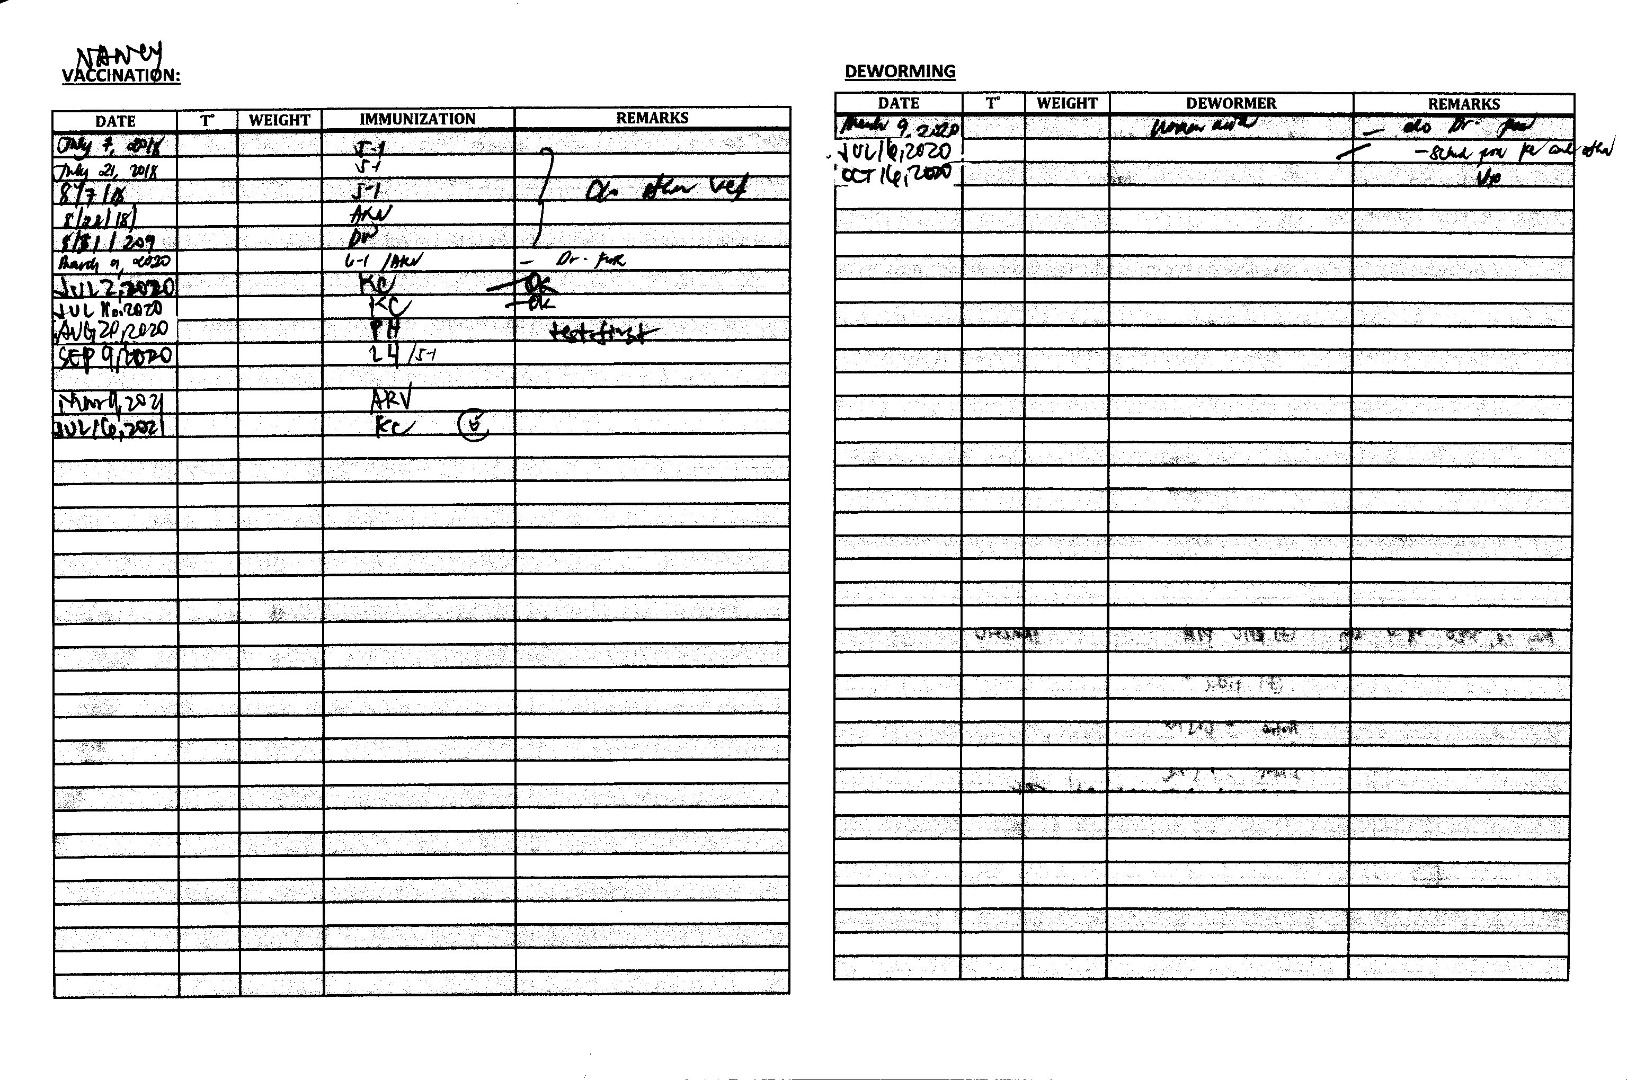 NANCY
VACCINATION:
DATE T° WEIGHT IMMUNIZATION REMARKS
July 7, 2018 5-1
July 21, 2018 5-1
8/7/18 5-1 other vet
8/22/18 ARV
8/31/209
March 9, 2020 6-1 /ARV - Dr.
JUL 2, 2020 KC - OK
JUL 16, 2020 KC - OK
AUG 20, 2020 PH test first
SEP 9, 2020 L4 /5-1
Mar 9, 2021 ARV
JUL 16, 2021 KC
DEWORMING
DATE T° WEIGHT DEWORMER REMARKS
March 9, 2020 - Dr.
JUL 16, 2020 - sched for KC and other
OCT 16, 2020